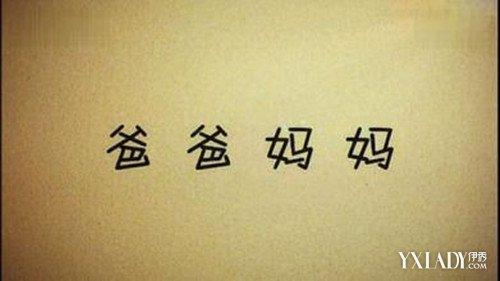 爸爸妈妈
YXLADY伊秀
.COM